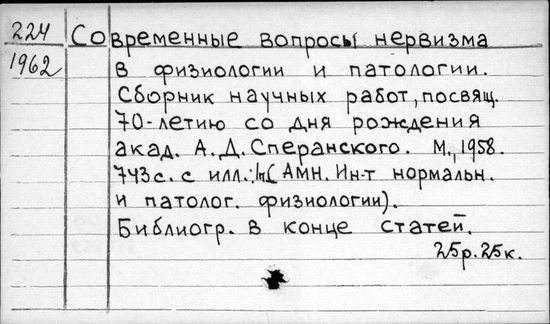 224
1962
Современные вопросы нервизма
в физиологии и патологии.
Сборник научных работ, посвящ.
70-летию со дня рождения
акад. А.Д.Сперанского. М., 1958.
743с. с илл.; (Амн. Ин-т нормальн.
и патолог. физиологии).
Библиогр. в конце статей.
25р.25к.